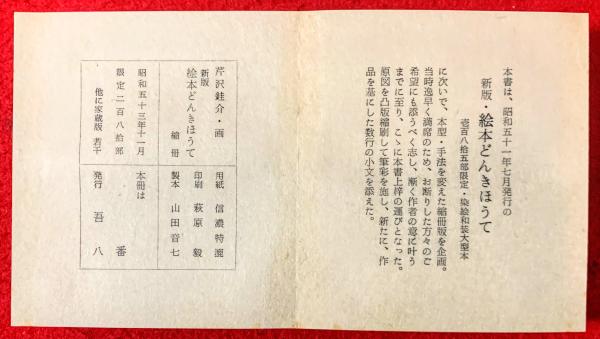 本書は、昭和五十一年七月発行の
新版・絵本どんきほうて
壱百八拾五部限定・染絵和装大型本
に次いで、本型・手法を変えた縮冊版を企画。
当時逸早く満席のため、お断りした方々のご
希望にも添うべく志し、漸く作者の意に叶う
までに至り、こゝに本書上梓の運びとなった。
原図を凸版縮刷して筆彩を施し、新たに、作
品を基にした数行の小文を添えた。
芹沢銈介・画
新版
絵本どんきほうて
縮冊
昭和五十三年十一月
限定二百八拾部
他に家蔵版 若干
用紙 信濃特漉
印刷 萩原 毅
製本 山田音七
本冊は
番
発行 吾八